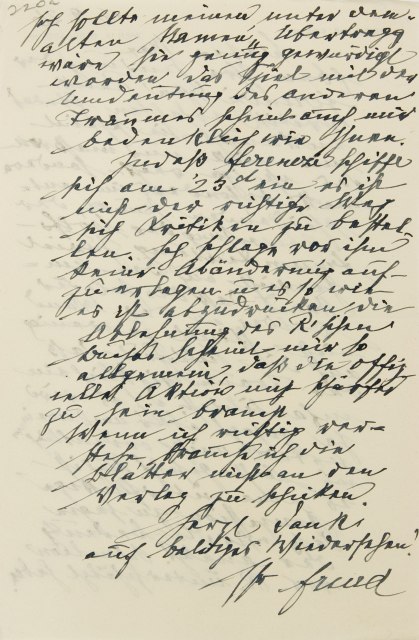 Ich sollte meinen, unter dem
alten Namen, Übertragg
wäre sie genug gewürdigt
worden das Spiel mit der
Umdeutung des anderen
Traumes scheint auch mir
bedenklich wie Ihnen.
Indeß Ferenczi schiffe
sich am 23st ein es ist
nicht der richtige Weg
sich Kritiken zu bestel-
len. Ich schlage vor ihm
keine Abänderung auf-
zuerlegen u es so wie
es ist abzudrucken, die
Ablehnung des R'schen
Buches scheint mir so
allgemein, daß die offiz
ielle Aktion nicht schärfer
zu sein braucht
Wenn ich richtig ver-
stehe brauche ich die
Blätter nicht an den
Verlag zu schicken.
Herzl Dank.
auf baldiges Wiedersehen!
Ihr Freud